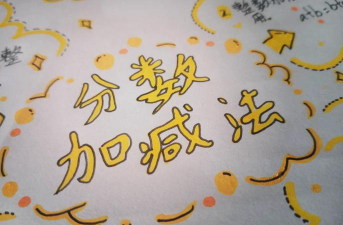 分数
加减法
整